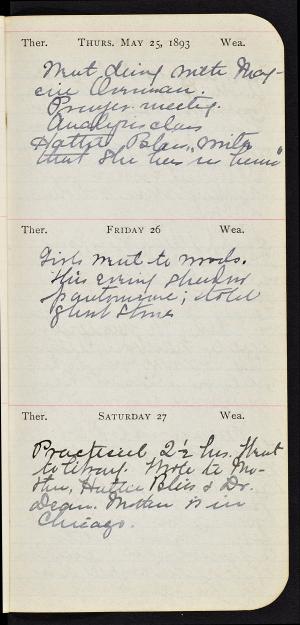 Ther. THURS. MAY 25, 1893 Wea.
Went driving with Mag-
gie Overman.
Prayer meeting.
Analysis class
Hattie Bliss writes
that she has "la
Ther. FRIDAY 26 Wea.
Girls went to woods.
This evening shadow
pantomime; told
ghost stories
Ther. SATURDAY 27 Wea.
Practised 2½ hrs. Went
to library. Wrote to Mo-
ther, Hattie Bliss & Dr.
Dean. Mother is in
Chicago.